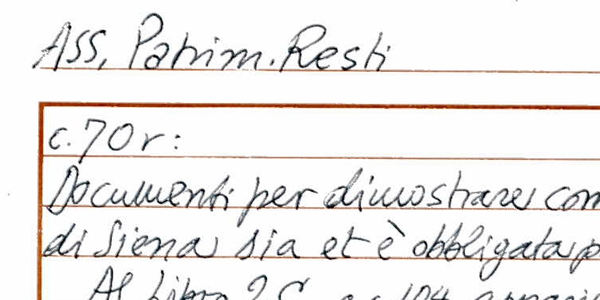 ASS, Patrim. Resti
c. 70 r:
Documenti per dimostrare com
di Siena sia et è obbligata p
Al Libro